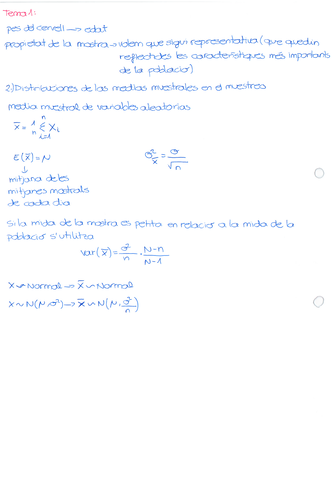 Tema 1:
pes del cervell → edat
propietat de la mostra → volem que sigui representativa (que quedin
reflectides les característiques més importants
de la població)
2) Distribuciones de las medias muestrales en el muestreo
media muestral de variables aleatorias
x̄ = 1/n Σ Xi
n
i=1
E(x̄) = N
σ²x̄ = σ/√n
↓
mitjana de les
mitjanes mostrals
de cada dia
Si la mida de la mostra es petita en relació a la mida de la
població s'utilitza
var(x̄) = σ²/n · N-n/N-1
X ~ Normal → x̄ ~ Normal
X ~ N(N, σ²) → x̄ ~ N(N, σ²/n)